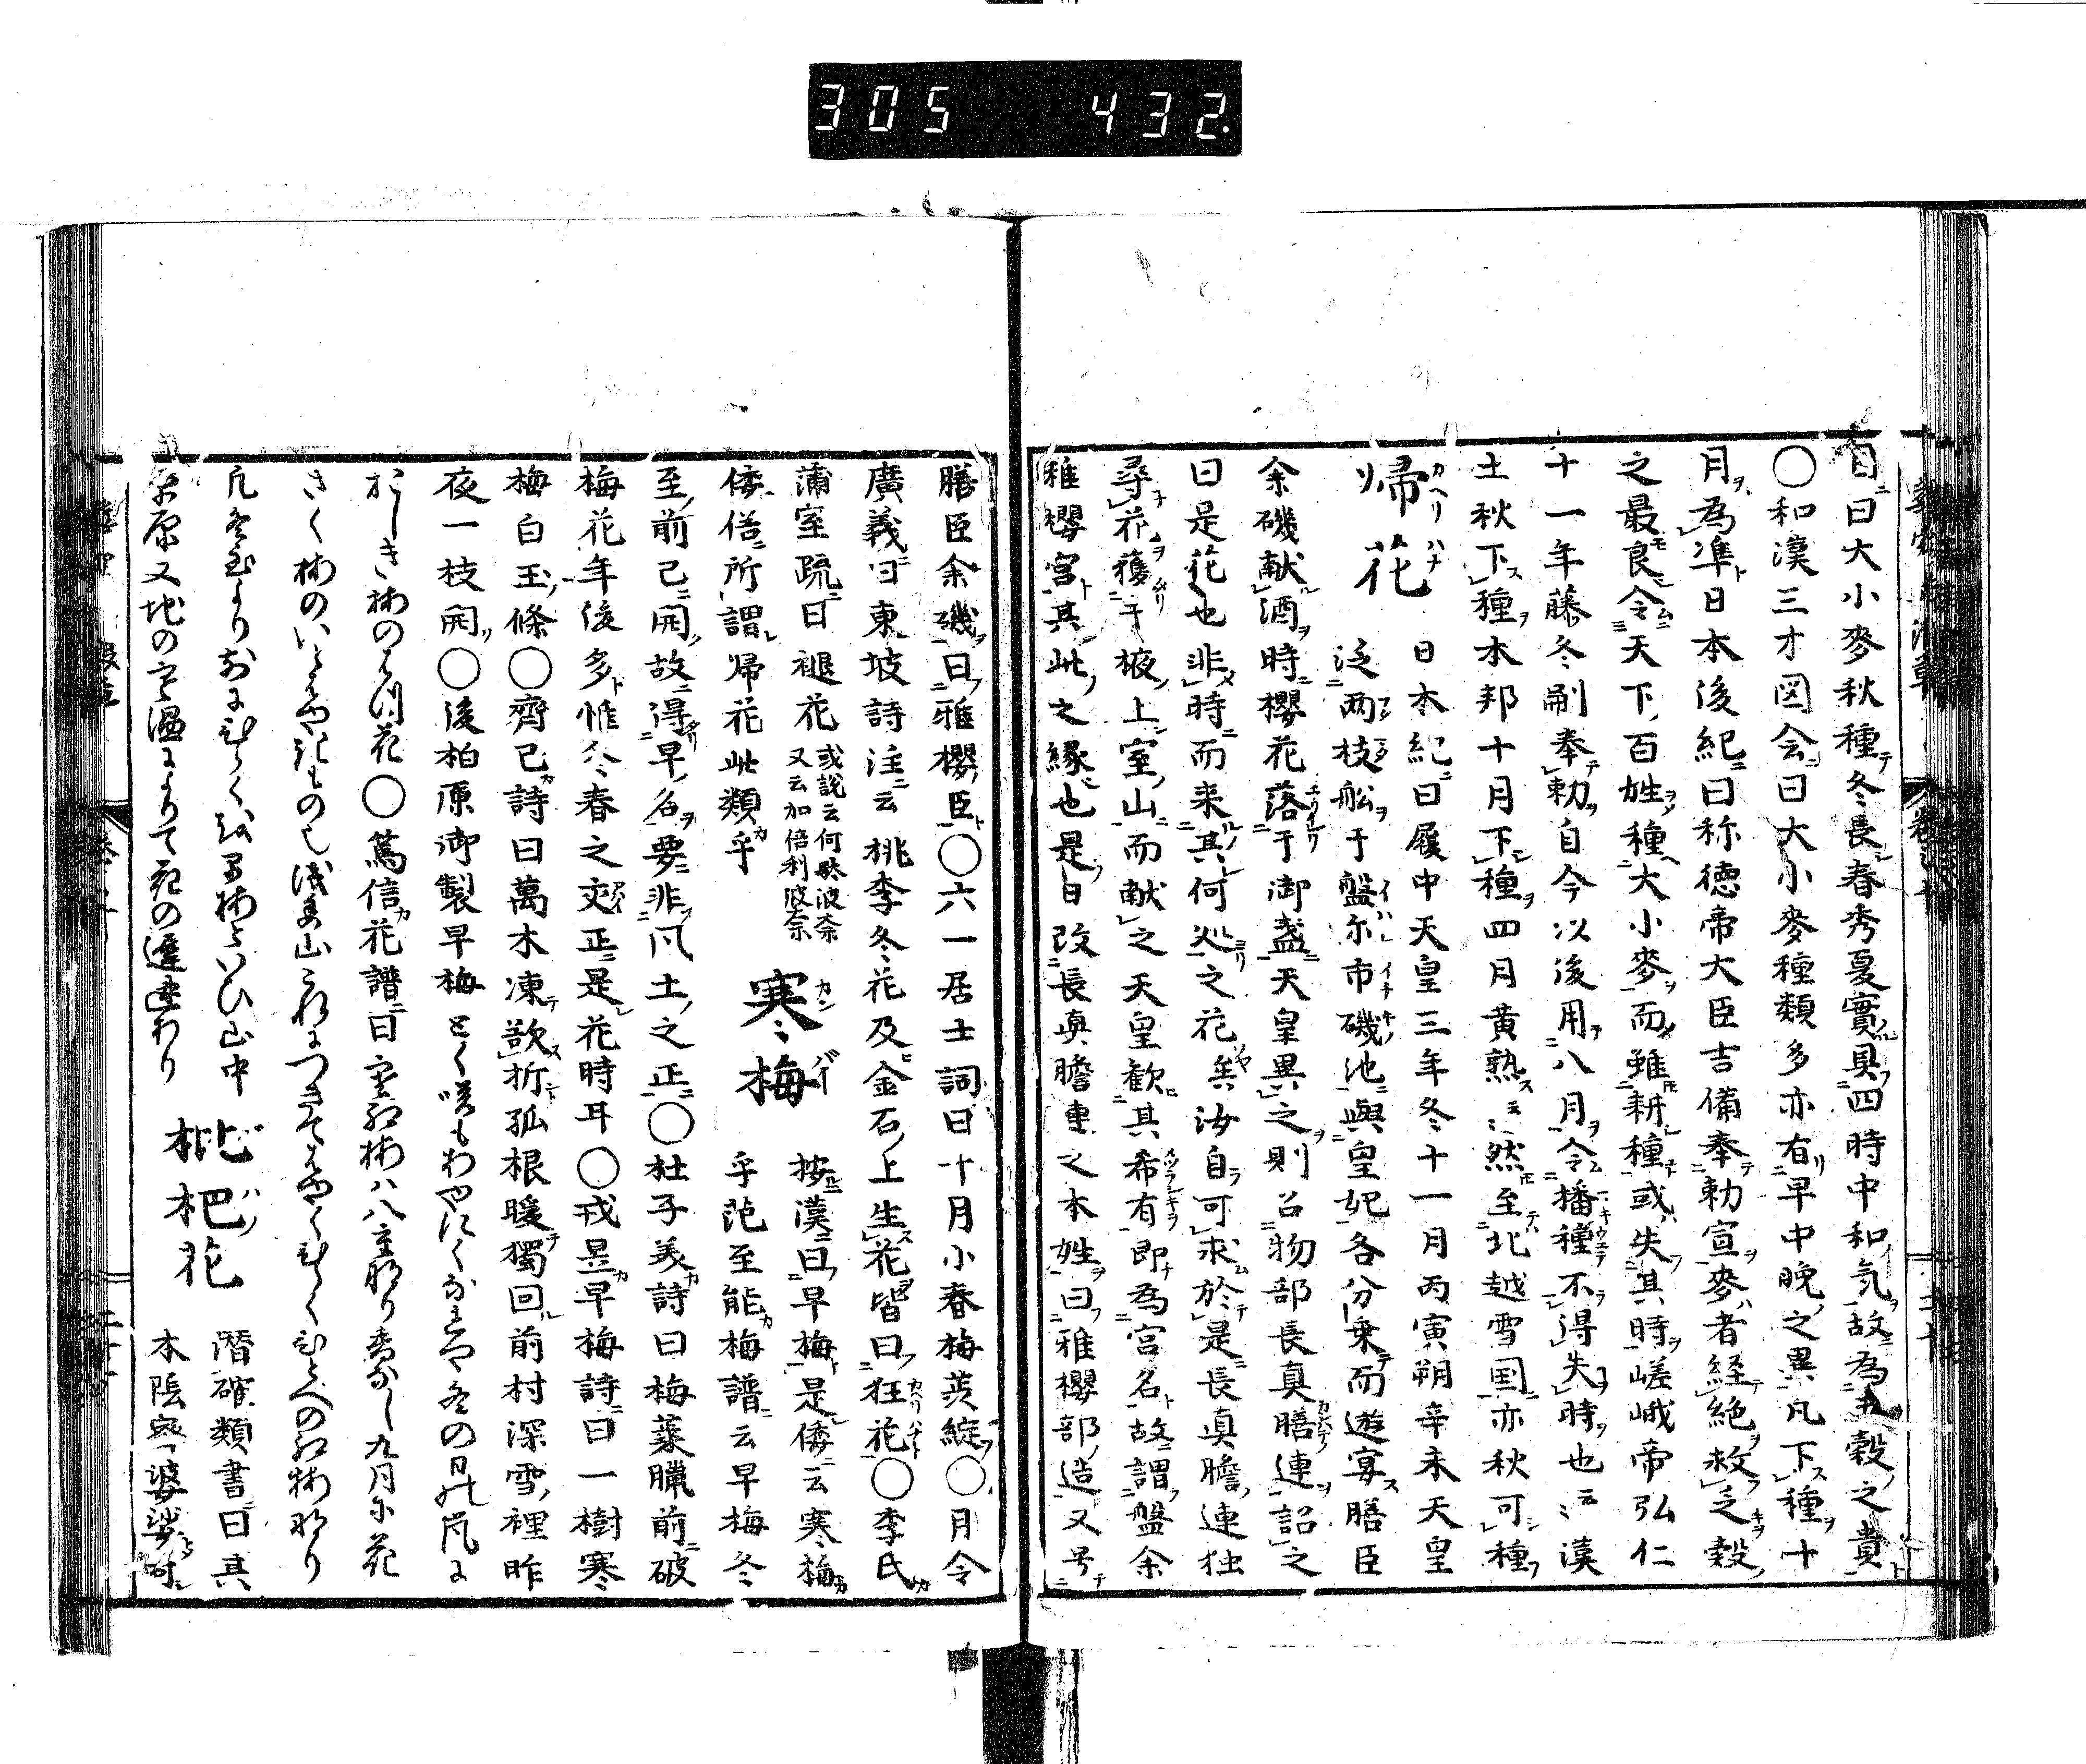 305 432.
目曰大小麥秋種冬長春秀夏實具四時中和気故為五穀之貴
〇和漢三才図会曰大小麥種類多亦有早中晩之異凡下種十
月為準日本後紀曰称徳帝大臣吉備奉勅宣麥者経絶救乏穀
之最良令天下百姓種大小麥而雖耕種或失其時嵯峨帝弘仁
十一年藤冬嗣奉勅自今以後用八月令播種不得失時也云〻漢
土秋下種本邦十月下種四月黄熟云〻然至北越雪国亦秋可種
帰花 カヘリハナ
日本紀曰履中天皇三年冬十一月丙寅朔辛未天皇
泛両枝舩于盤尓市磯池與皇妃各分乗而遊宴膳臣
余磯献酒時櫻花落于御盞天皇異之則召物部長真膳連詔之
曰是花也非時而来其何処之花矣汝自可求於是長真膽連独
尋花獲于掖上室山而献之天皇歓其希有即為宮名故謂盤余
稚櫻宮其此之縁也是日改長真膽連之本姓曰稚櫻部造又号
膳臣余磯曰雅櫻臣〇六一居士詞曰十月小春梅蕊綻〇月令
廣義曰東坡詩注云桃李冬花及金石上生花皆曰狂花〇李氏
蒲室疏曰褪花 或説云何敝波奈 又云加倍利波奈
倭俗所謂帰花此類乎
寒梅 カンバイ
按漢曰早梅是倭云寒梅
乎范至能梅譜云早梅冬
至前已開故得早名要非凡土之正〇杜子美詩曰梅蘂臘前破
梅花年後多惟冬春之交正是花時耳〇戎昱早梅詩曰一樹寒
梅白玉條〇齊已詩曰萬木凍欲折孤根暖獨回前村深雪裡昨
夜一枝開〇後柏原御製早梅 とく咲もわやにくなれや冬の日の嵐に
おしき梅のはつ花〇篤信花譜曰寒紅梅ハ八重なり香なし九月に花
さく梅の
凡冬至より前にひらくを早梅といひ山中
平原又地の寒温によりて花の遅速あり
枇杷花 ビハノ
潛確類書曰其
本陰密婆娑可